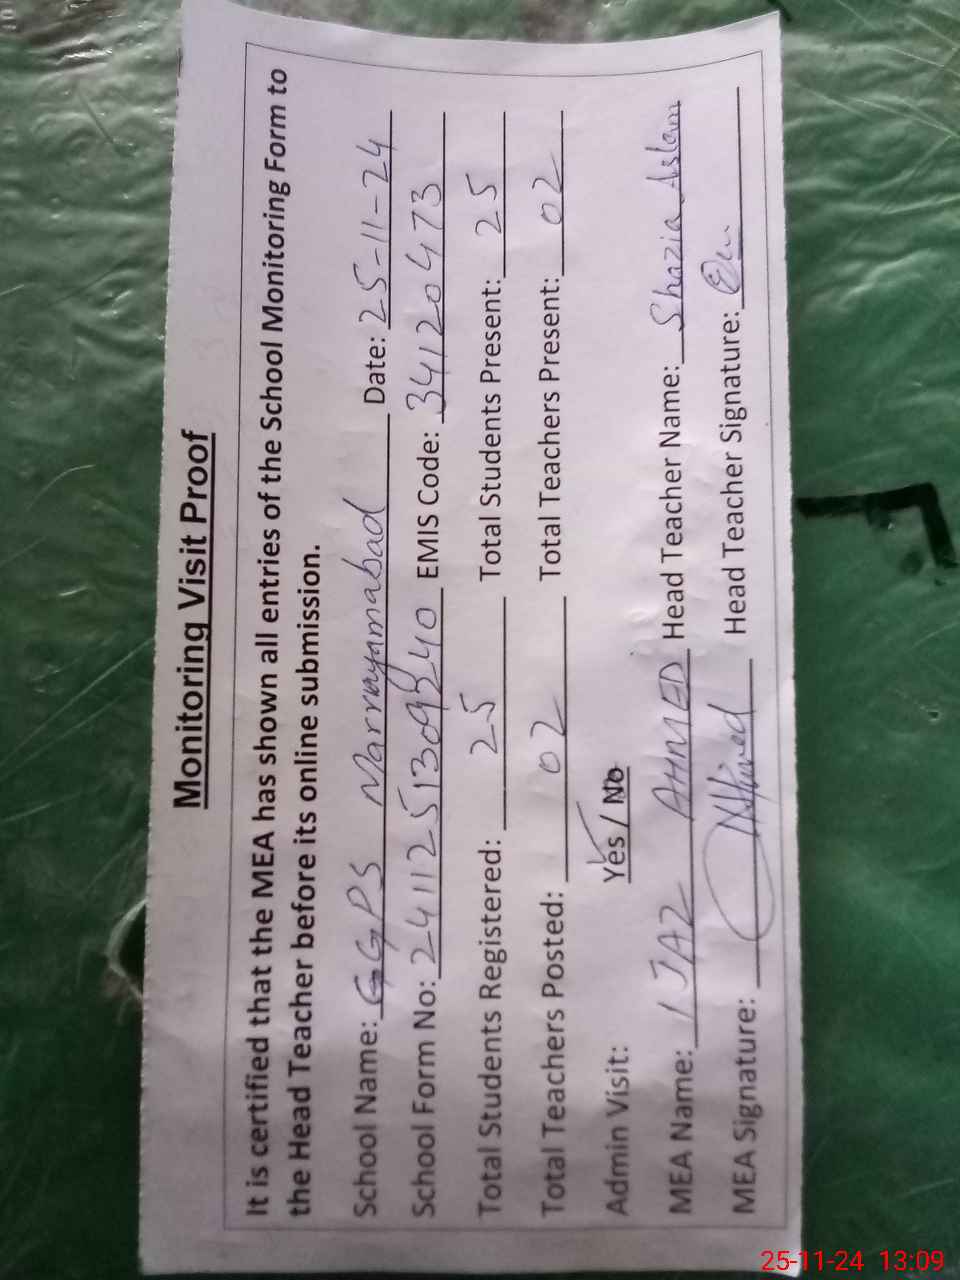 Monitoring Visit Proof
It is certified that the MEA has shown all entries of the School Monitoring Form to
the Head Teacher before its online submission.
School Name: GGPS Marrayamabad Date: 25-11-24
School Form No: EMIS Code: 34120473
Total Students Registered: 25 Total Students Present: 25
Total Teachers Posted: 02 Total Teachers Present: 02
Admin Visit: Yes / No
MEA Name: IJAZ AHMED Head Teacher Name: Shazia Aslam
MEA Signature: Head Teacher Signature:
25-11-24 13:09